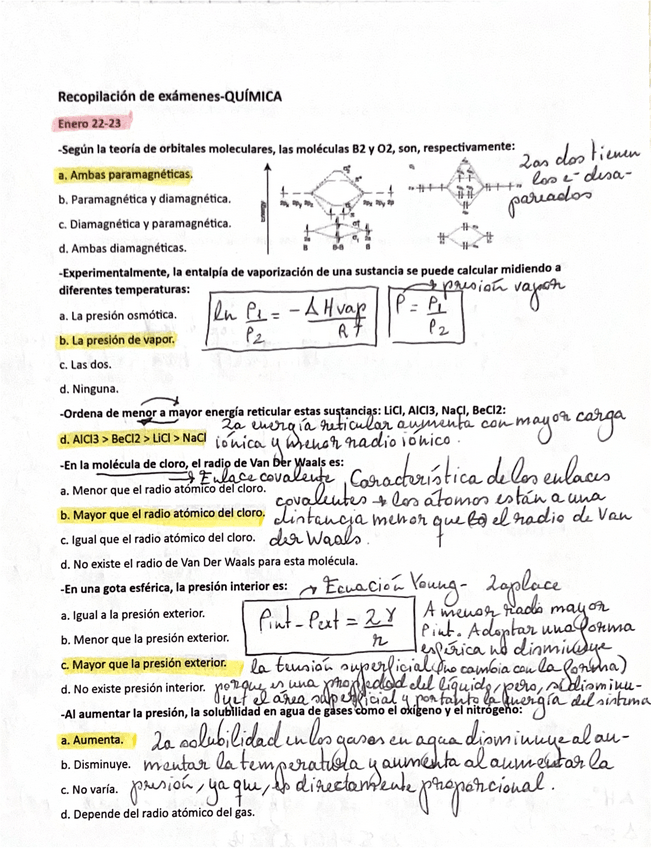 Recopilación de exámenes-QUÍMICA
Enero 22-23
-Según la teoría de orbitales moleculares, las moléculas B2 y O2, son, respectivamente:
a. Ambas paramagnéticas.
b. Paramagnética y diamagnética.
c. Diamagnética y paramagnética.
d. Ambas diamagnéticas.
Las dos tienen
los e- desa-
pareados
-Experimentalmente, la entalpía de vaporización de una sustancia se puede calcular midiendo a
diferentes temperaturas:
→ presión vapor
a. La presión osmótica.
b. La presión de vapor.
c. Las dos.
d. Ninguna.
ln P1/P2 = -ΔHvap/RT
P = P1/P2
-Ordena de menor a mayor energía reticular estas sustancias: LiCl, AlCl3, NaCl, BeCl2:
La energía reticular aumenta con mayor carga
d. AlCl3 > BeCl2 > LiCl > NaCl iónica y menor radio iónico.
-En la molécula de cloro, el radio de Van Der Waals es:
→ Enlace covalente
a. Menor que el radio atómico del cloro.
b. Mayor que el radio atómico del cloro.
c. Igual que el radio atómico del cloro.
d. No existe el radio de Van Der Waals para esta molécula.
Característica de los enlaces
covalentes → los átomos están a una
distancia menor que el radio de Van
der Waals.
-En una gota esférica, la presión interior es: → Ecuación Young- Laplace
a. Igual a la presión exterior.
b. Menor que la presión exterior.
c. Mayor que la presión exterior.
d. No existe presión interior.
Pint - Pext = 2γ/r
A menor radio mayor
Pint. Adoptar una forma
esférica no disminuye
la tensión superficial (no cambia con la forma)
porque es una propiedad del líquido, pero, si disminu-
ye el área superficial y por tanto la energía del sistema
-Al aumentar la presión, la solubilidad en agua de gases como el oxígeno y el nitrógeno:
a. Aumenta.
b. Disminuye.
c. No varía.
d. Depende del radio atómico del gas.
La solubilidad en los gases en agua disminuye al au-
mentar la temperatura y aumenta al aumentar la
presión, ya que, es directamente proporcional.